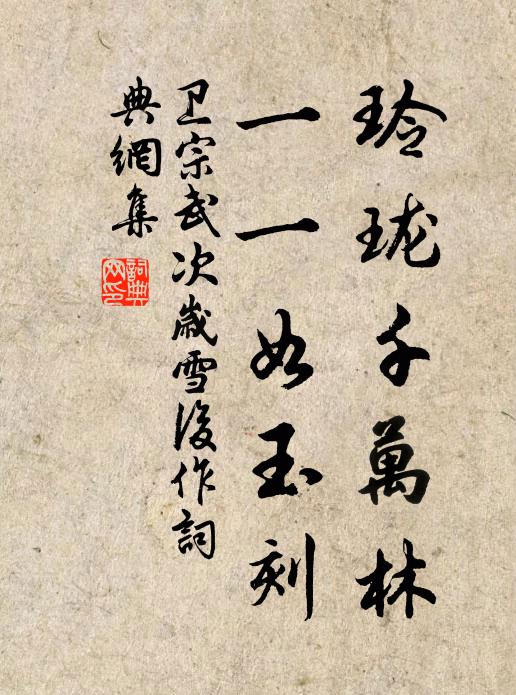 玲珑千萬林
一一如玉刻
卫宗武次歲雪後作詞
典網集
詞典
网印